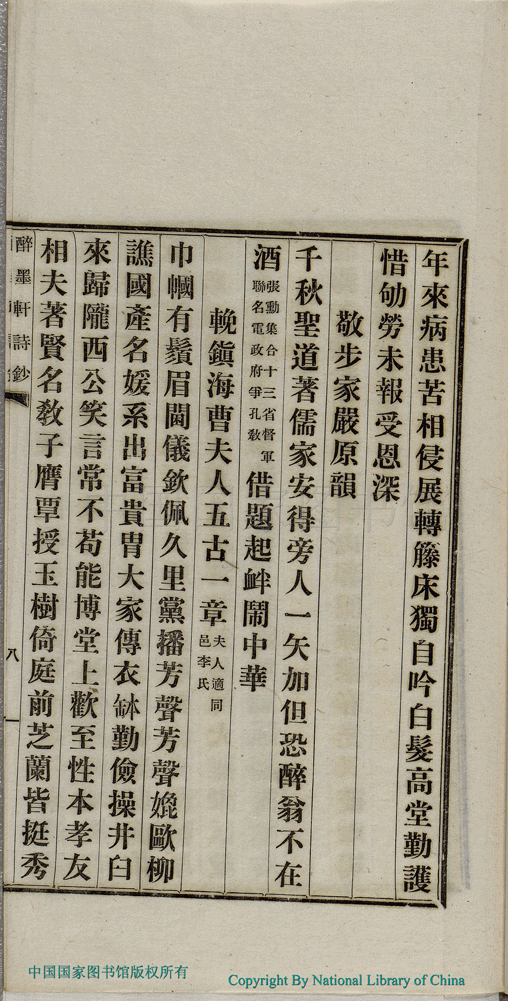 年來病患苦相侵展轉籐床獨自吟白髮高堂勤護
惜劬勞未報受恩深
敬步家嚴原韻
千秋聖道著儒家安得旁人一矢加但恐醉翁不在
酒張勳集合十三省督軍聯名電政府爭孔敎借題起衅鬧中華
輓鎭海曹夫人五古一章夫人適同邑李氏
巾幗有鬚眉閫儀欽佩久里黨播芳聲芳聲媲歐柳
譙國產名媛系出富貴胄大家傳衣缽勤儉操井臼
來歸隴西公笑言常不苟能博堂上歡至性本孝友
相夫著賢名敎子膺覃授玉樹倚庭前芝蘭皆挺秀
醉墨軒詩鈔
八
中国国家图书馆版权所有
Copyright By National Library of China